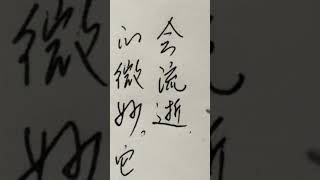 会流逝，
的微妙。它